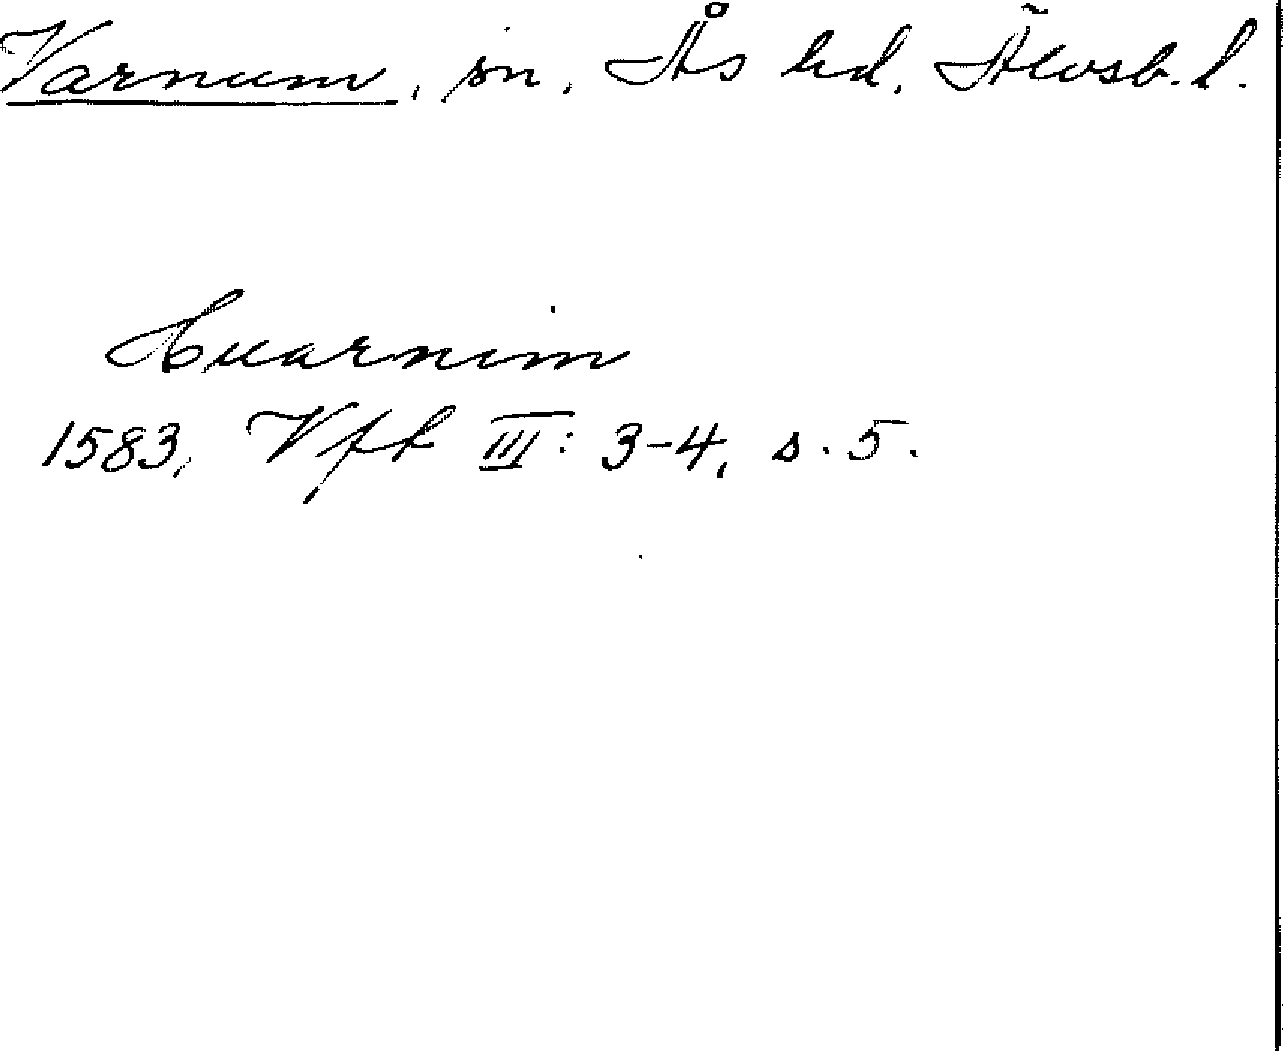 Varnum, sn, Ås hd, Älvsb. l.
Huarnim
1583, Vft III: 3-4, s. 5.